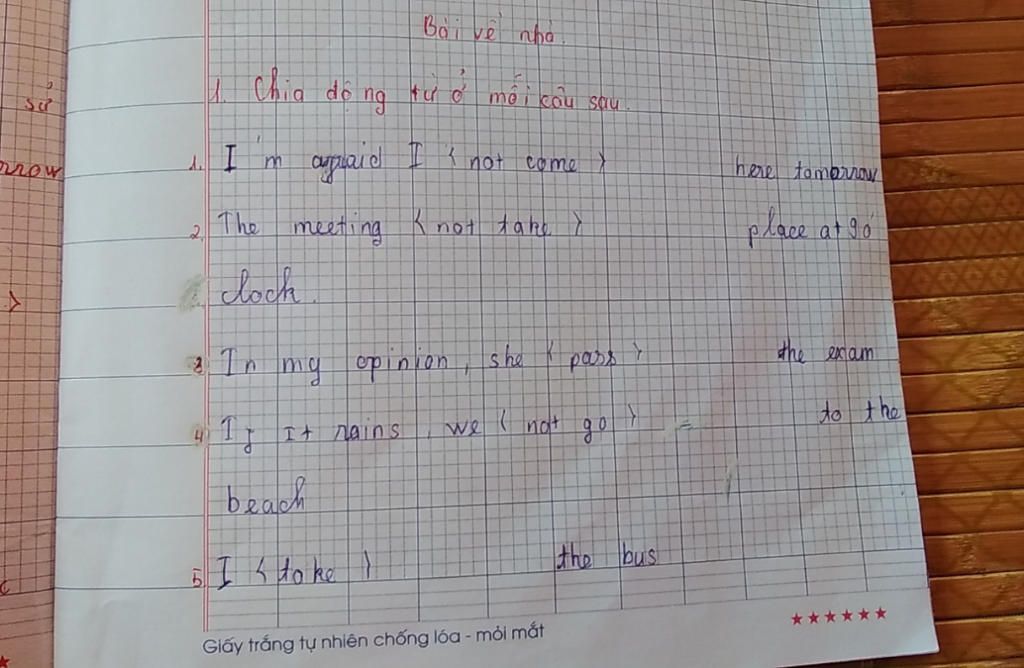 Bài về nhà.
sử
1. Chia động từ ở mỗi câu sau.
rrow
1. I'm afraid I (not come) here tomorrow
2. The meeting (not take) place at 9 o'
clock.
3 In my opinion, she (pass) the exam
4 If it rains, we (not go) = to the
beach
5 I (take) the bus
c
Giấy trắng tự nhiên chống lóa - mỏi mắt